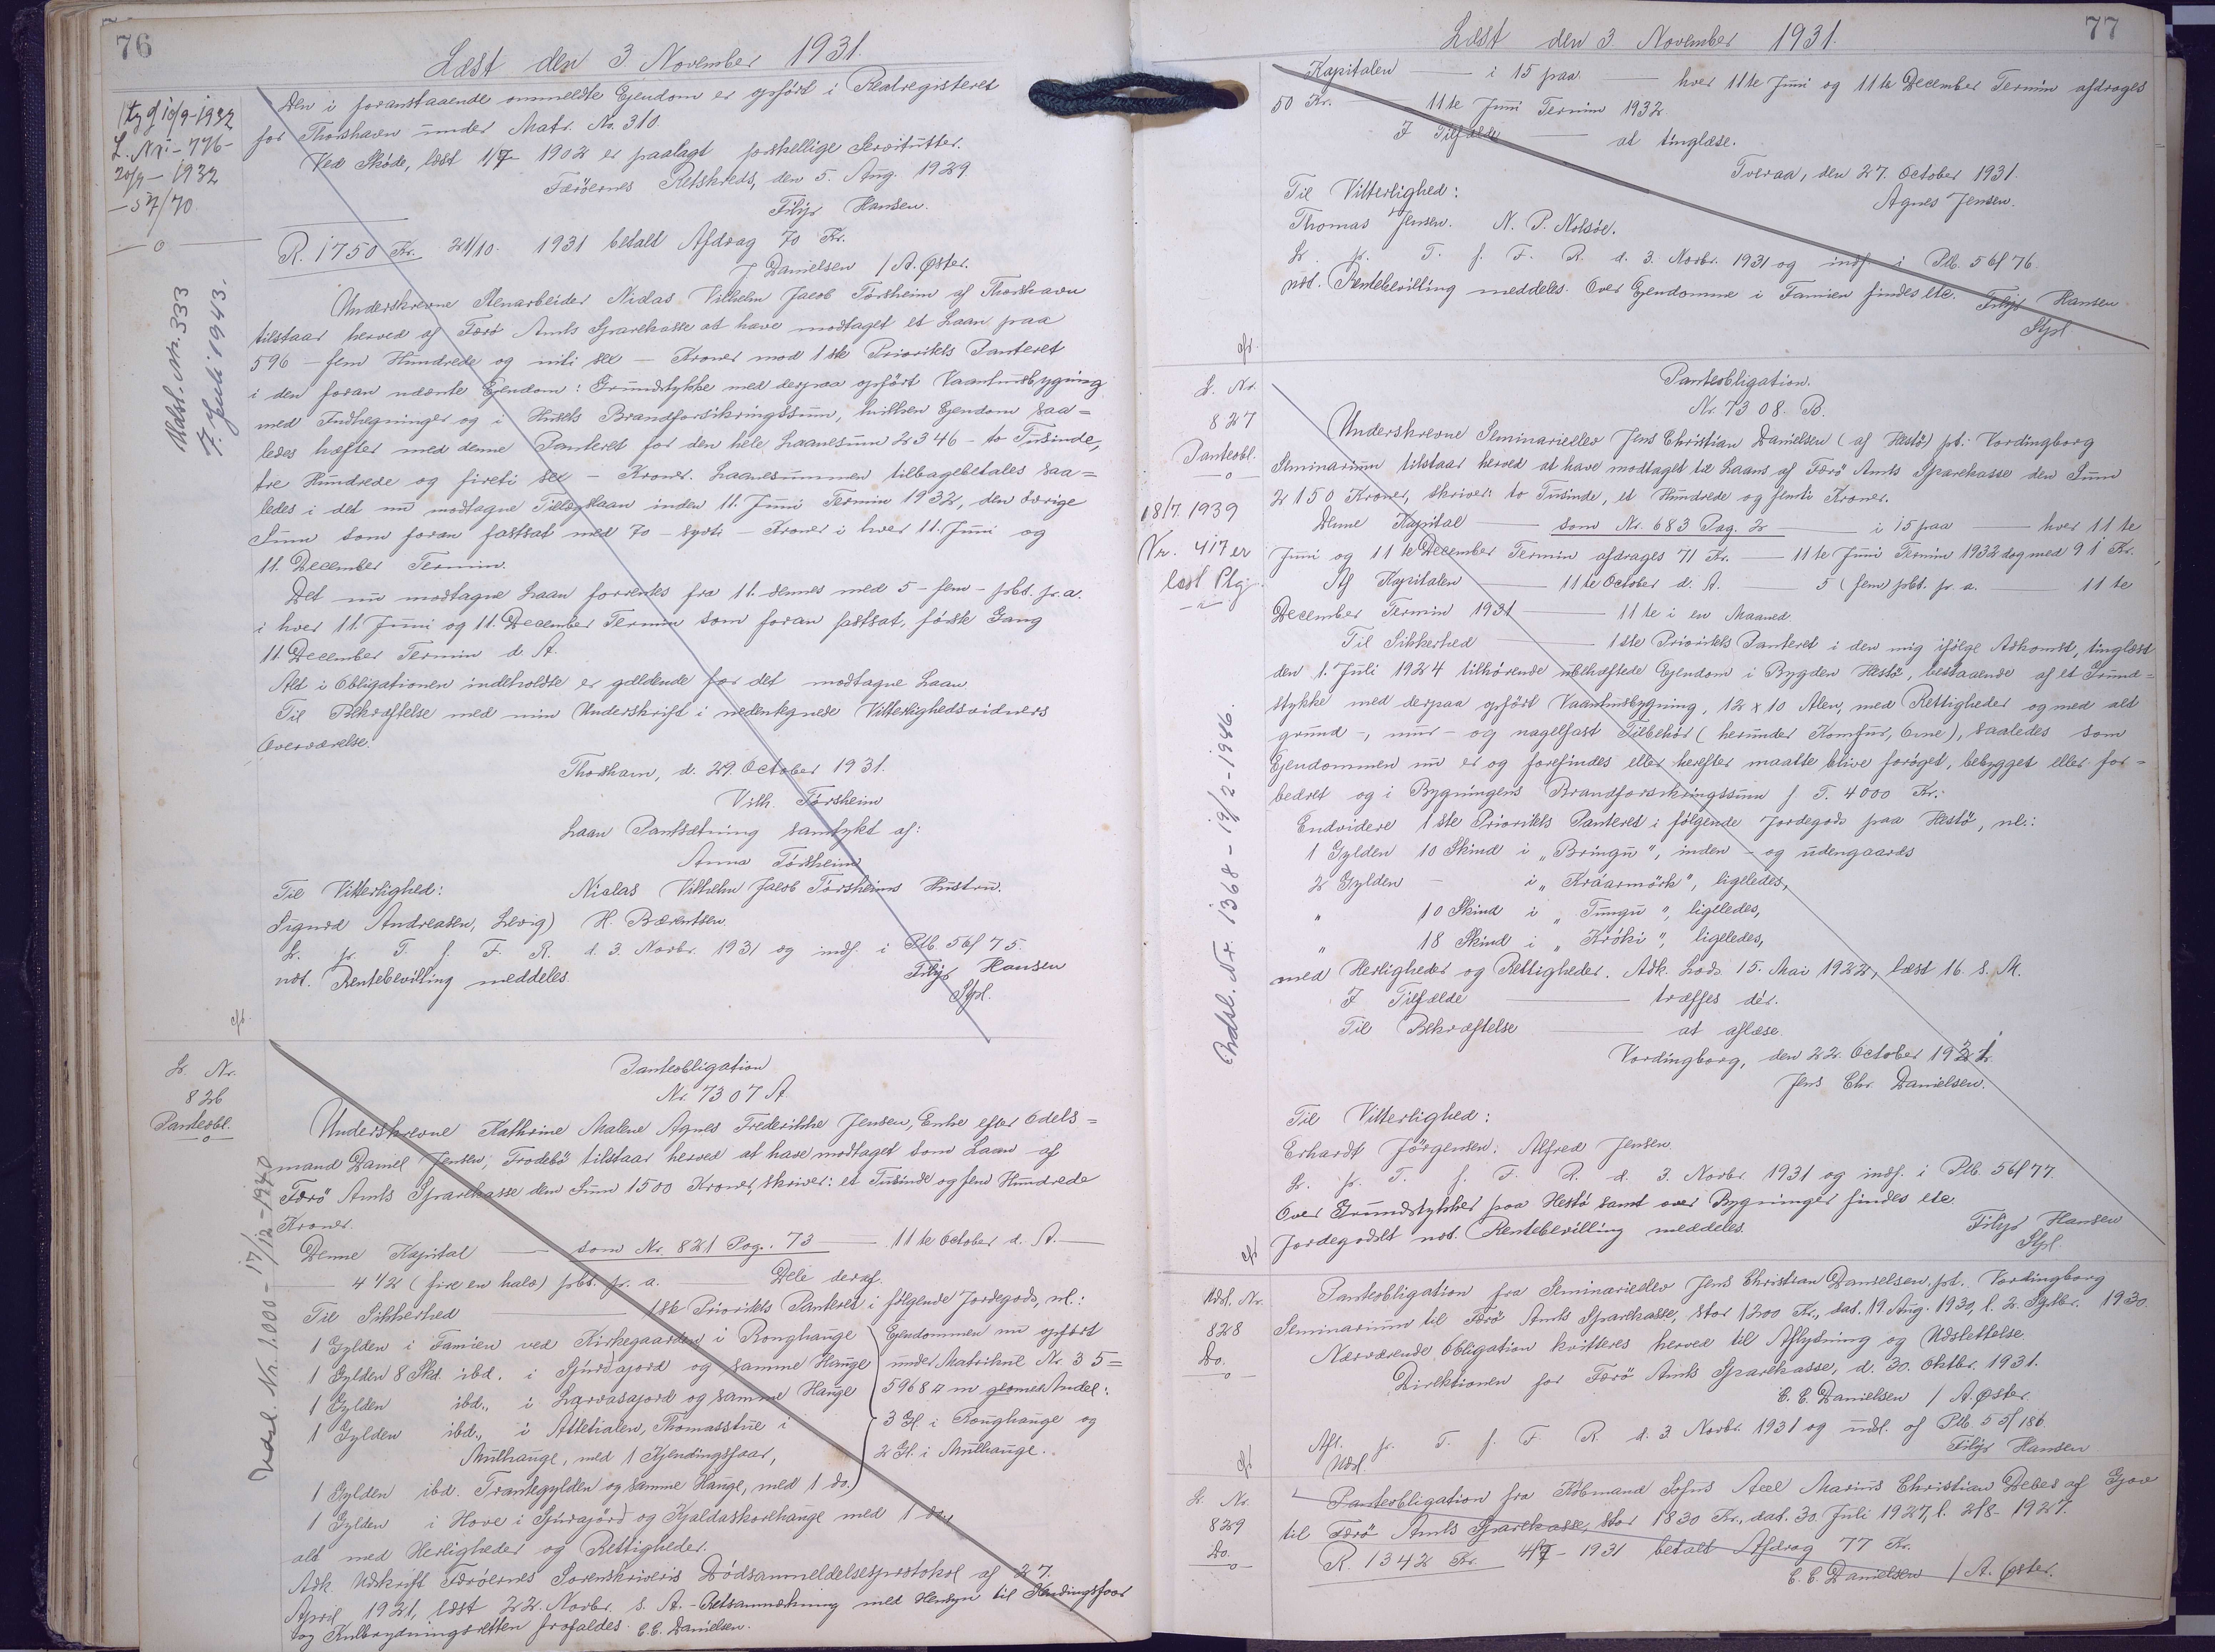 76
Læst den 3 November 1931.
Den i foranstaaende ommeldte Ejendom er opført i Realregisteret
for Thorshavn under Matr. No. 310.
Ved Skøde, læst 1/7- 1902 er paalagt forskellige Servitutter.
Færøernes Retskreds, den 5. Aug. 1929.
Filip Hansen.
R. 1750 Kr. 21/10. 1931 betalt Afdrag 70 Kr.
J Danielsen / A. Øster.
Underskrevne Stenarbeider Niclas Vilhelm Jacob Tórsheim af Thorshavn
tilstaar herved af Færø Amts Sparekasse at have modtaget et Laan paa
596 - fem Hundrede og niti sex - Kroner mod 1ste Prioritets Panteret
i den foran nævnte Ejendom: Grundstykke med derpaa opført Vaaningsbygning
med Indhegninger og i Husets Brandforsikringssum, hvilken Ejendom saa=
ledes hæfter med denne Panteret for den hele Laanesum 2346 - to Tusinde,
tre Hundrede og fireti sex - Kroner. Laanesummen tilbagebetales saa=
ledes i det nu modtagne Tillægslaan inden 11. Juni Termin 1932, den øvrige
Sum som foran fastsat med 70 - syvti - Kroner i hver 11. Juni og
11. December Termin.
Det nu modtagne Laan forrentes fra 11. dennes med 5 - fem - pCt. p. a.
i hver 11. Juni og 11. December Termin som foran fastsat, første Gang
11. December Termin d. A.
Alt i Obligationen indeholdte er gældende for det modtagne Laan
Til Bekræftelse med min Underskrift i nedentegnede Vitterlighedsvidners
Overværelse.
Thorshavn, d. 29. October 1931.
Vilh. Tórsheim
Laan Pantsætning samtykt af:
Anna Tórsheim
Til Vitterlighed: Niclas Vilhelm Jacob Tórsheims Hustru.
Sigurd Andreasen, Levig) H. Bærentsen.
L. p. T. f. F. R. d. 3. Novbr. 1931 og indf. i Ptb. 56f 75.
not. Rentebevilling meddeles.
Filip Hansen
Stpl.
L. Nr.: - 776 -
20/9 - 1932
- 57/70.
Udsl. Nr. 333
7. Juli 1943.
L. Nr.
826
Panteobl.
Udsl. Nr. 1.000 - 17/12 - 1940
Panteobligation
Nr. 7307 A
Underskrevne Kathrine Malene Agnes Frederikke Jensen, Enke efter Odels=
mand Daniel Jensen, Frodebø tilstaar herved at have modtaget som Laan af
Færø Amts Sparekasse den Sum 1500 Kroner, skriver: et Tusinde og fem Hundrede
Kroner.
Denne Kapital — som Nr. 821 Pag. 73 — 11te October d. A. —
— 4 1/2 (fire en halv) pCt. p. a. — Dele deraf.
Til Sikkerhed — 1ste Prioritets Panteret i følgende Jordegods, nl.:
1 Gylden i Famien ved Kirkegaarden i Ronghauge
1 Gylden 8 Skd. ibd. i Sjúrdajord og samme Hauge
1 Gylden ibd., i Larvasajord og samme Hauge
1 Gylden ibd., i Attetialen, Thomasstue i
Mulhauge, med 1 Kjendingsfaar,
1 Gylden ibd. Trantegylden og samme Hauge, med 1 do.)
Ejendommen nu opført
under Matrikul Nr. 35=
3 Gl. i Ronghauge og
2 Gl. i Mulhauge.
1 Gylden i Hove i Sjúrajørd og Kjaldaskorehauge med 1 do.,
alt med Herligheder og Rettigheder.
Adk. Udskrift Færöernes Sorenskriveris Dødsanmeldelsesprotokol af 27.
April 1921, læst 22. Novbr. s. A. - Retsanmærkning med Hensyn til Kendingsfaar
og Kulbrydningsretten frafaldes. C.C. Danielsen.
77
Læst den 3. November 1931.
Kapitalen — i 15 paa — hver 11te Juni og 11te December Termin afdrages
50 Kr. — 11te Juni Termin 1932
I Tilfælde — at tinglæse.
Tveraa, den 27. October 1931.
Agnes Jensen.
Til Vitterlighed:
Thomas Jensen. N. P. Nolsøe.
L. p. T. f. F. R. d. 3. Novbr. 1931 og indf. i Ptb. 56f 76
not. Rentebevilling meddeles. Over Ejendomme i Famien findes etc.
Filip Hansen
Stpl.
L. Nr.
827
Panteobl.
18/7. 1939
Nr. 417 er
læst Ptg.
Udsl. Nr. 1368 - 19/2 - 1946.
Panteobligation.
Nr. 7308. B.
Underskrevne Seminarieelev Jens Christian Danielsen (af Hestø) pt. Vordingborg
Seminarium tilstaar herved at have modtaget til Laans af Færø Amts Sparekasse den Sum
2150 Kroner, skriver: to Tusinde, et Hundrede og femti Kroner.
Denne Kapital — som Nr. 683 Pag. 2 — i 15 paa — hver 11te
Juni og 11te December Termin afdrages 71 Kr. — 11te Juni Termin 1932 dog med 91 Kr.
Af Kapitalen — 11te October d. A. — 5 (fem) pCt. p. a. — 11te
December Termin 1931 — 11te i en Maaned
Til Sikkerhed — 1ste Prioritets Panteret i den mig ifølge Adkomst, tinglæst
den 1. Juli 1924 tilhørende ubehæftede Ejendom i Bygden Hestø, bestaaende af et Grund=
stykke med derpaa opført Vaaningsbygning, 12 x 10 Alen, med Rettigheder og med alt
grund-, mur- og nagelfast Tilbehör (herunder Komfur, Ovne), saaledes som
Ejendommen nu er og forefindes eller herefter maatte blive forøget, bebygget eller for=
bedret og i Bygningens Brandforsikringssum f. T. 4000 Kr.:
Endvidere 1ste Prioritets Panteret i følgende Jordegods paa Hestø, nl.:
1 Gylden 10 Skind i „Bringu", inden- og udengaards
2 Gylden - i „Kráarmörk", ligeledes,
" 10 Skind i „Tungu", ligeledes,
" 18 Skind i „Króki", ligeledes,
med Herligheder og Rettigheder. Adk. Lods. 15. Mai 1922, læst 16. s. M.
I Tilfælde — træffes dér.
Til Bekræftelse — at aflæse.
Vordingborg, den 22. October 1931.
Jens Chr. Danielsen.
Til Vitterlighed:
Erhardt Jörgensen. Alfred Jensen.
L. p. T. f. F. R. d. 3. Novbr. 1931 og indf. i Ptb. 56f 77.
Over Grundstykket paa Hestø samt over Bygninger findes etc.
Jordegodset not. Rentebevilling meddeles.
Filip Hansen
Stpl.
Udsl. Nr.
828
Do.
Panteobligation fra Seminarieelev Jens Christian Danielsen, pt. Vordingborg
Seminarium til Færø Amts Sparekasse, stor 1200 Kr., dat. 19 Aug. 1930, l. 2. Sptbr. 1930.
Nærværende Obligation kvitteres herved til Aflysning og Udslettelse.
Direktionen for Færø Amts Sparekasse, d. 30. Oktbr. 1931.
C. C. Danielsen / A. Øster.
Afl. p. T. f. F. R. d. 3 Novbr. 1931 og udsl. af Ptb. 55f 186.
Udsl.
Filip Hansen
L. Nr.
829
Do.
Panteobligation fra Købmand Sofus Axel Marius Christian Debes af Gjov
til Færø Amts Sparekasse, stor 1830 Kr., dat. 30. Juli 1927, l. 2/8- 1927.
R. 1342 Kr. 4/7- 1931 betalt Afdrag 77 Kr.
C. C. Danielsen / A. Øster.